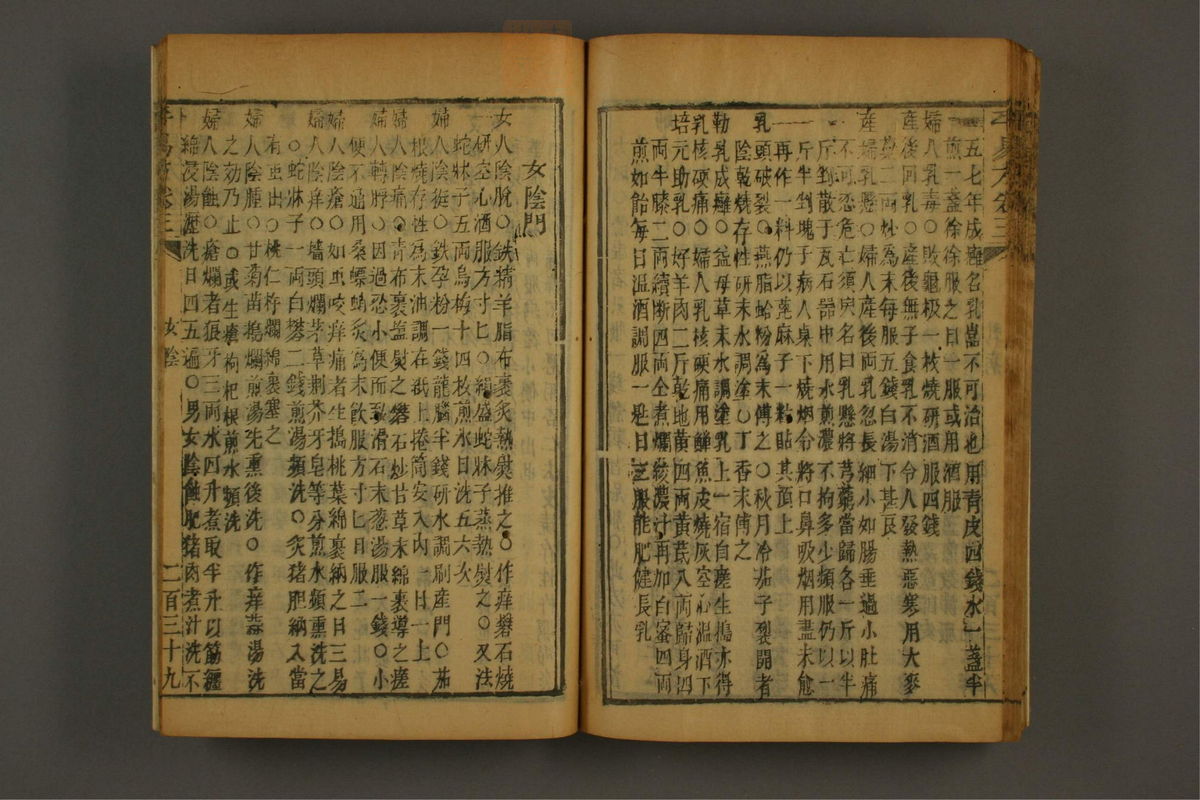 五七年成癰名乳嵓不可治也用青皮四錢水一盞半
煎一盞徐徐服之日一服或用酒服
婦人乳毒○敗龜板一枚燒研酒服四錢
產後回乳○產後無子食乳不消令人發熱惡寒用大麥
二兩炒為末每服五錢白湯下甚良
產婦乳懸○婦人產後兩乳忽長細小如腸垂過小肚痛
不可忍危亡須臾名曰乳懸將芎藭當歸各一斤以半
斤剉散于瓦石器中用水煎濃不拘多少頻服仍以一
斤半剉塊于病人桌下燒烟令將口鼻吸烟用盡未愈
再作一料仍以萆麻子一粒貼其頂上
乳頭破裂○燕脂蛤粉為末傅之○秋月冷茄子裂開者
陰乾燒存性研末水調塗○丁香末傅之
勒乳成癰○益母草末水調塗乳上一宿自瘥生搗亦得
乳核硬痛○婦人乳核硬痛用鯶魚皮燒灰空心溫酒下
培元助乳○好羊肉二斤乾地黃四兩黃芪八兩歸身四
兩牛膝二兩續斷四兩仝煮爛絞濃汁再加白蜜四兩
煎如飴每日溫酒調服一匙日三服能肥健長乳
女陰門
女人陰脫○鐵精羊脂布裹炙熱熨推之○作痒礬石燒
研空心酒服方寸匕○絹盛蛇牀子蒸熱熨之○又法
蛇牀子五兩烏梅十四枚煎水日洗五六次
婦人陰挺○鐵孕粉一錢龍腦半錢研水調刷產門○茄
根燒存性為末油調在紙上捲筒安入內一日一上
婦人陰痛○青布裹鹽熨之礬石炒甘草末綿裹導之瘥
婦人轉脬○因過忍小便而致滑石末葱湯服二錢○小
便不通用桑螵蛸炙為末飲服方寸匕日服二
婦人陰瘡○如虫咬痒痛者生搗桃葉綿裹納之日三易
婦人陰痒○墻頭爛茅草荆芥牙皂等分煎水頻熏洗之
○蛇牀子一兩白礬二錢煎湯頻洗○炙猪胆納入當
有虫出○桃仁杵爛綿裹塞之
婦人陰腫○甘菊苗搗爛煎湯先熏後洗○作痒蒜湯洗
之効乃止○或生瘡枸杞根煎水頻洗
婦人陰蝕○瘡爛者狼牙三兩水四升煮取半升以筋纏
綿浸湯瀝洗日四五遍○男女陰蝕肥猪肉煮汁洗不
卷三
女陰
二百三十九